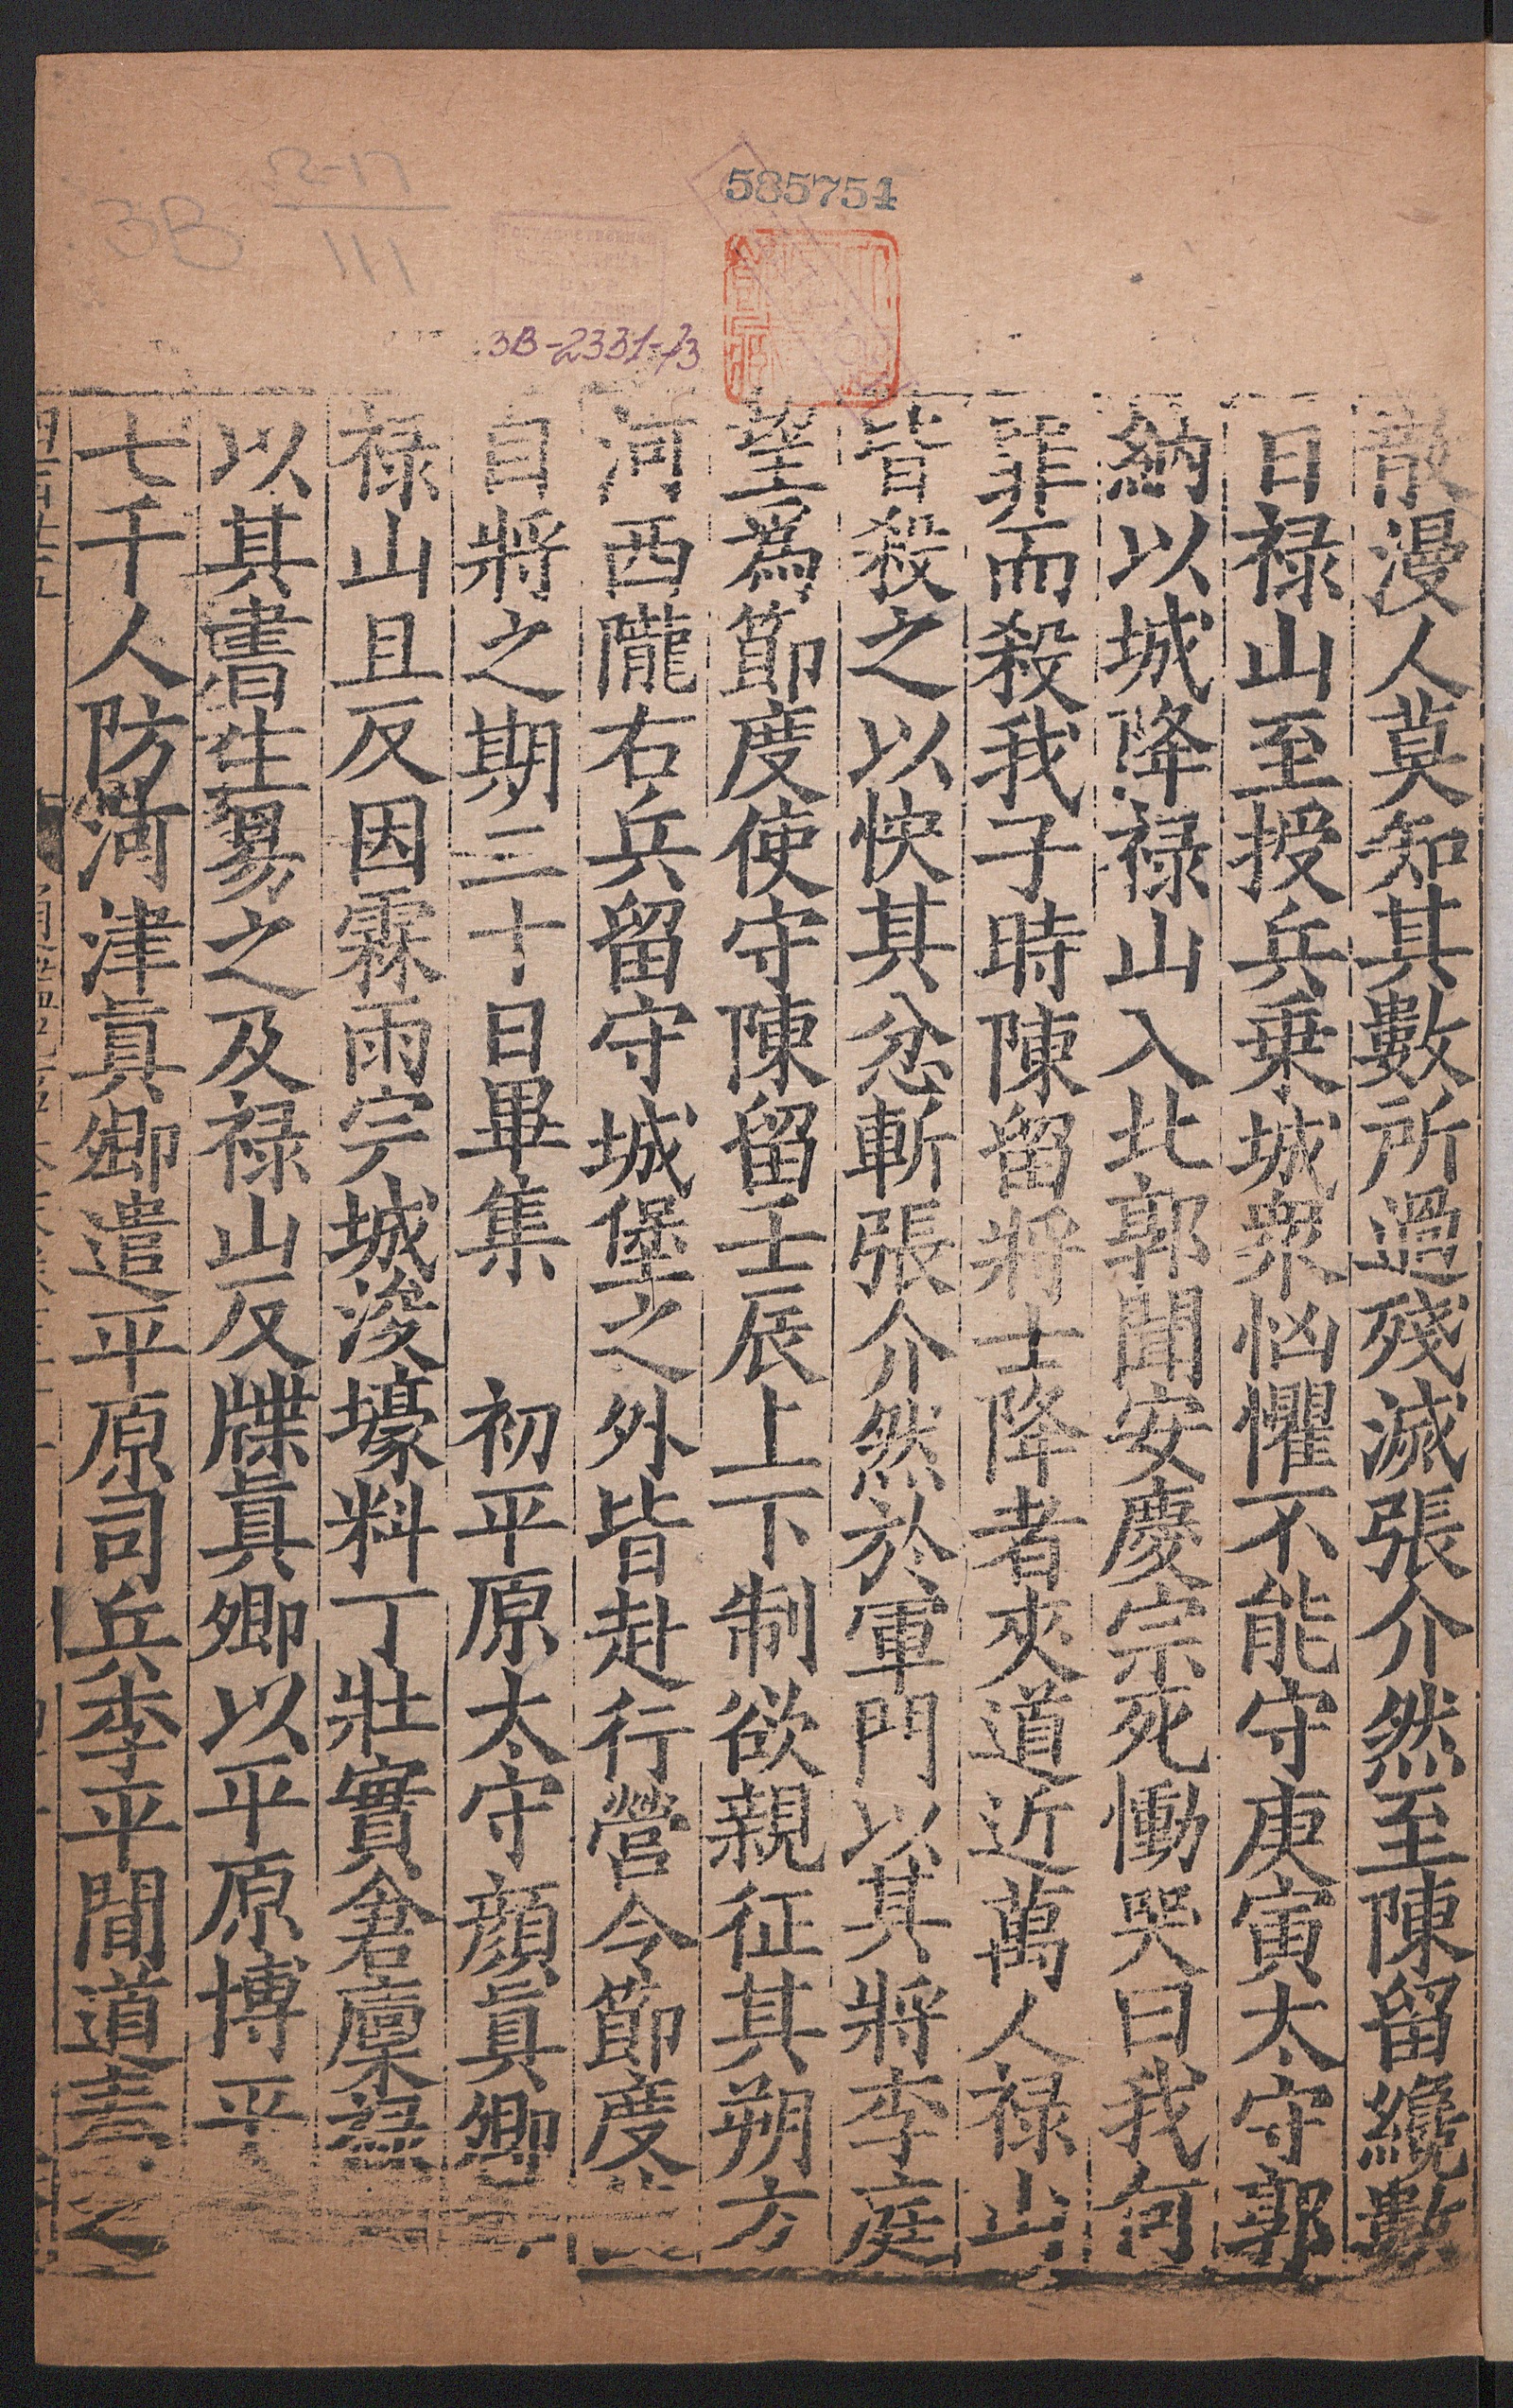 585754
3B
111
3B-2331-/3
散漫人莫知其數所過殘滅張介然至陳留纔數
日禄山至授兵乗城衆忷懼不能守庚寅太守郭
納以城降禄山入北郭聞安慶宗死慟哭曰我何
罪而殺我子時陳留將士降者夾道近萬人禄山
皆殺之以快其忿斬張介然於軍門以其將李庭
望爲節度使守陳留壬辰上下制欲親征其朔方
河西隴右兵留守城堡之外皆赴行營令節度
自將之期三十日畢集 初平原太守顔真卿
禄山且反因霖雨完城浚壕料丁壯實倉廩
以其書生易之及禄山反牒真卿以平原博平
七千人防河津真卿遣平原司兵李平間道奏之